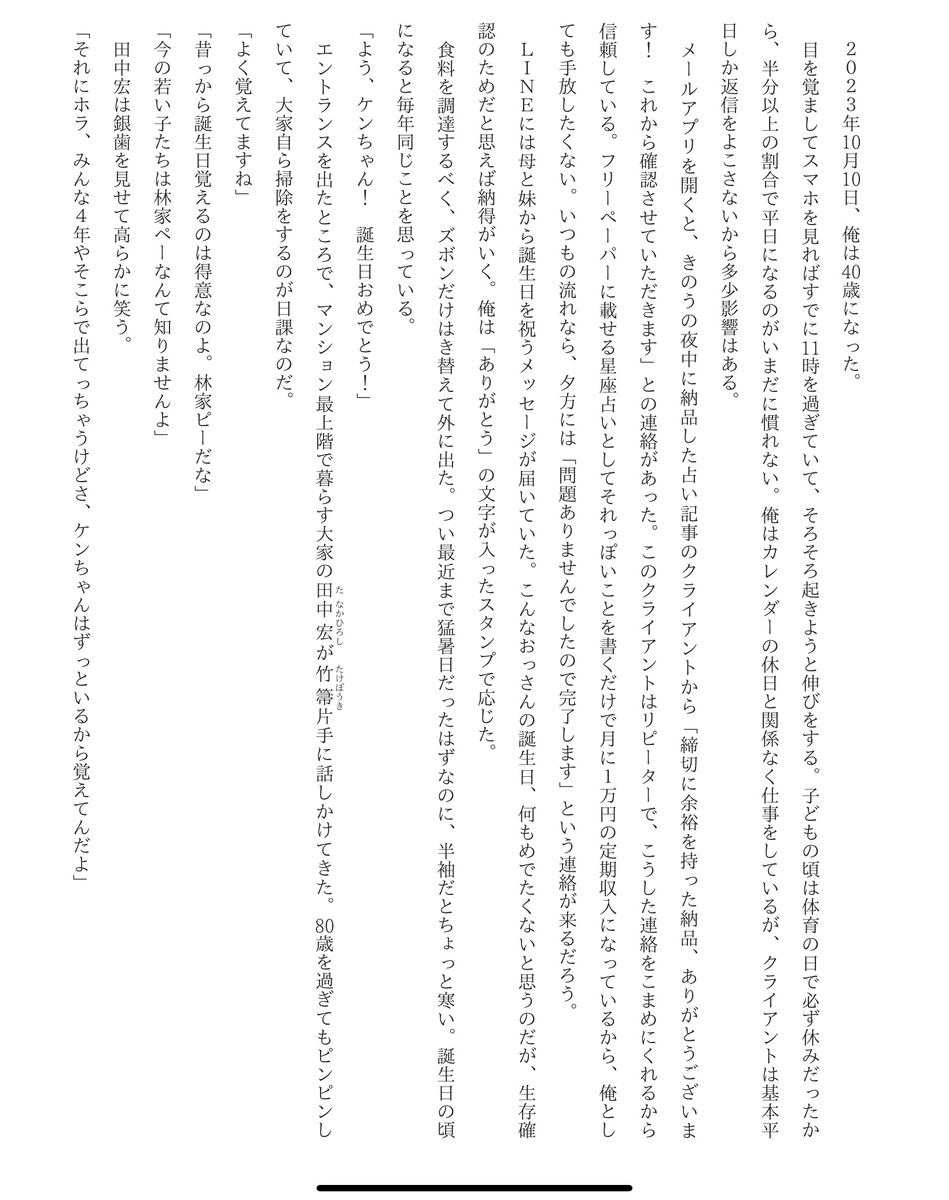 2023年10月10日、俺は40歳になった。
目を覚ましてスマホを見ればすでに11時を過ぎていて、そろそろ起きようと伸びをする。子どもの頃は体育の日で必ず休みだったか
ら、半分以上の割合で平日になるのがいまだに慣れない。俺はカレンダーの休日と関係なく仕事をしているが、クライアントは基本平
日しか返信をよこさないから多少影響はある。
メールアプリを開くと、きのうの夜中に納品した占い記事のクライアントから「締切に余裕を持った納品、ありがとうございま
す! これから確認させていただきます」との連絡があった。このクライアントはリピーターで、こうした連絡をこまめにくれるから
信頼している。フリーペーパーに載せる星座占いとしてそれっぽいことを書くだけで月に1万円の定期収入になっているから、俺とし
ても手放したくない。いつもの流れなら、夕方には「問題ありませんでしたので完了します」という連絡が来るだろう。
LINEには母と妹から誕生日を祝うメッセージが届いていた。こんなおっさんの誕生日、何もめでたくないと思うのだが、生存確
認のためだと思えば納得がいく。俺は「ありがとう」の文字が入ったスタンプで応じた。
食料を調達するべく、ズボンだけはき替えて外に出た。つい最近まで猛暑日だったはずなのに、半袖だとちょっと寒い。誕生日の頃
になると毎年同じことを思っている。
「よう、ケンちゃん! 誕生日おめでとう!」
エントランスを出たところで、マンション最上階で暮らす大家の田中宏が竹箒片手に話しかけてきた。80歳を過ぎてもピンピンし
たなかひろし
たけぼうき
ていて、大家自ら掃除をするのが日課なのだ。
「よく覚えてますね」
「昔っから誕生日覚えるのは得意なのよ。林家ピーだな」
「今の若い子たちは林家ペーなんて知りませんよ」
田中宏は銀歯を見せて高らかに笑う。
「それにホラ、みんな4年やそこらで出てっちゃうけどさ、ケンちゃんはずっといるから覚えてんだよ」